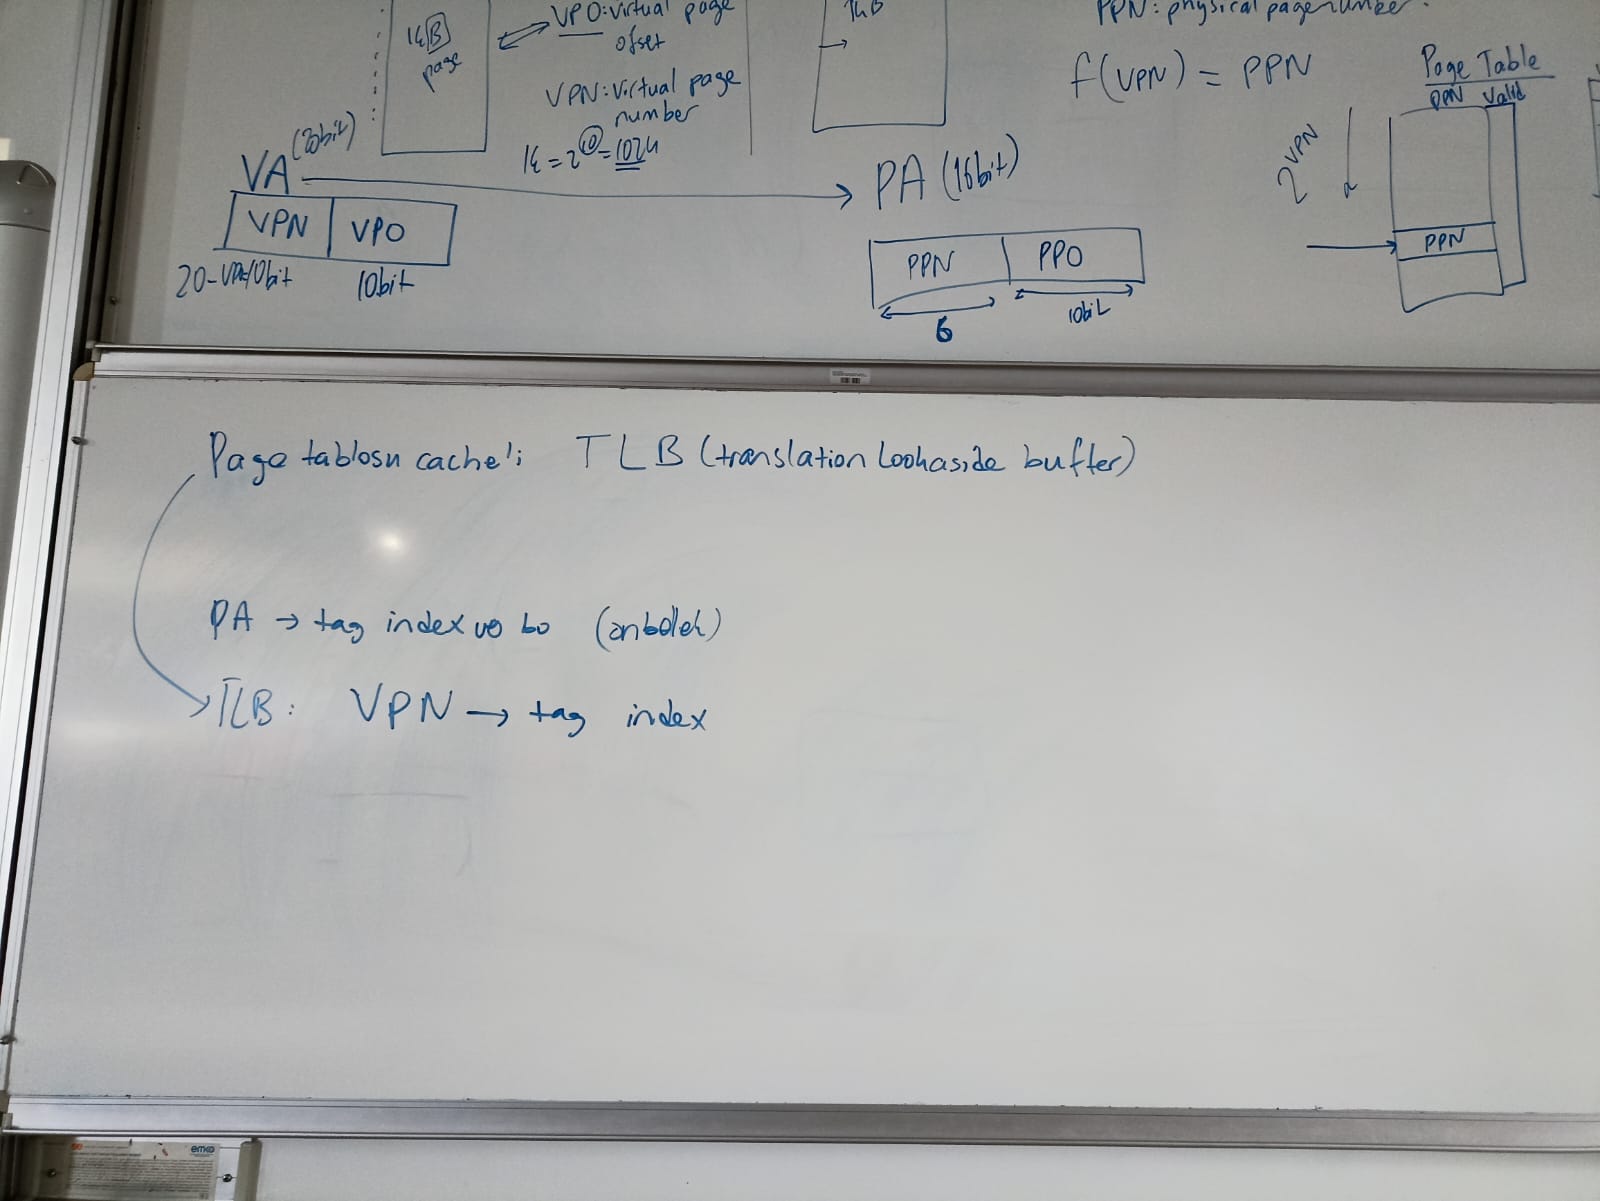 1kB page
VPO: virtual page ofset
VPN: virtual page number
1k = 2^10 = 1024
PPN: physical page number.
f(VPN) = PPN
Page Table
PPN Valid
2^VPN
PPN
VA (20bit)
PA (16bit)
VPN VPO
10bit
PPN PPO
6 10bit
Page tablosu cache'i TLB (translation Lookaside buffer)
PA → tag index ve bo (önbellek)
TLB: VPN → tag index
emko